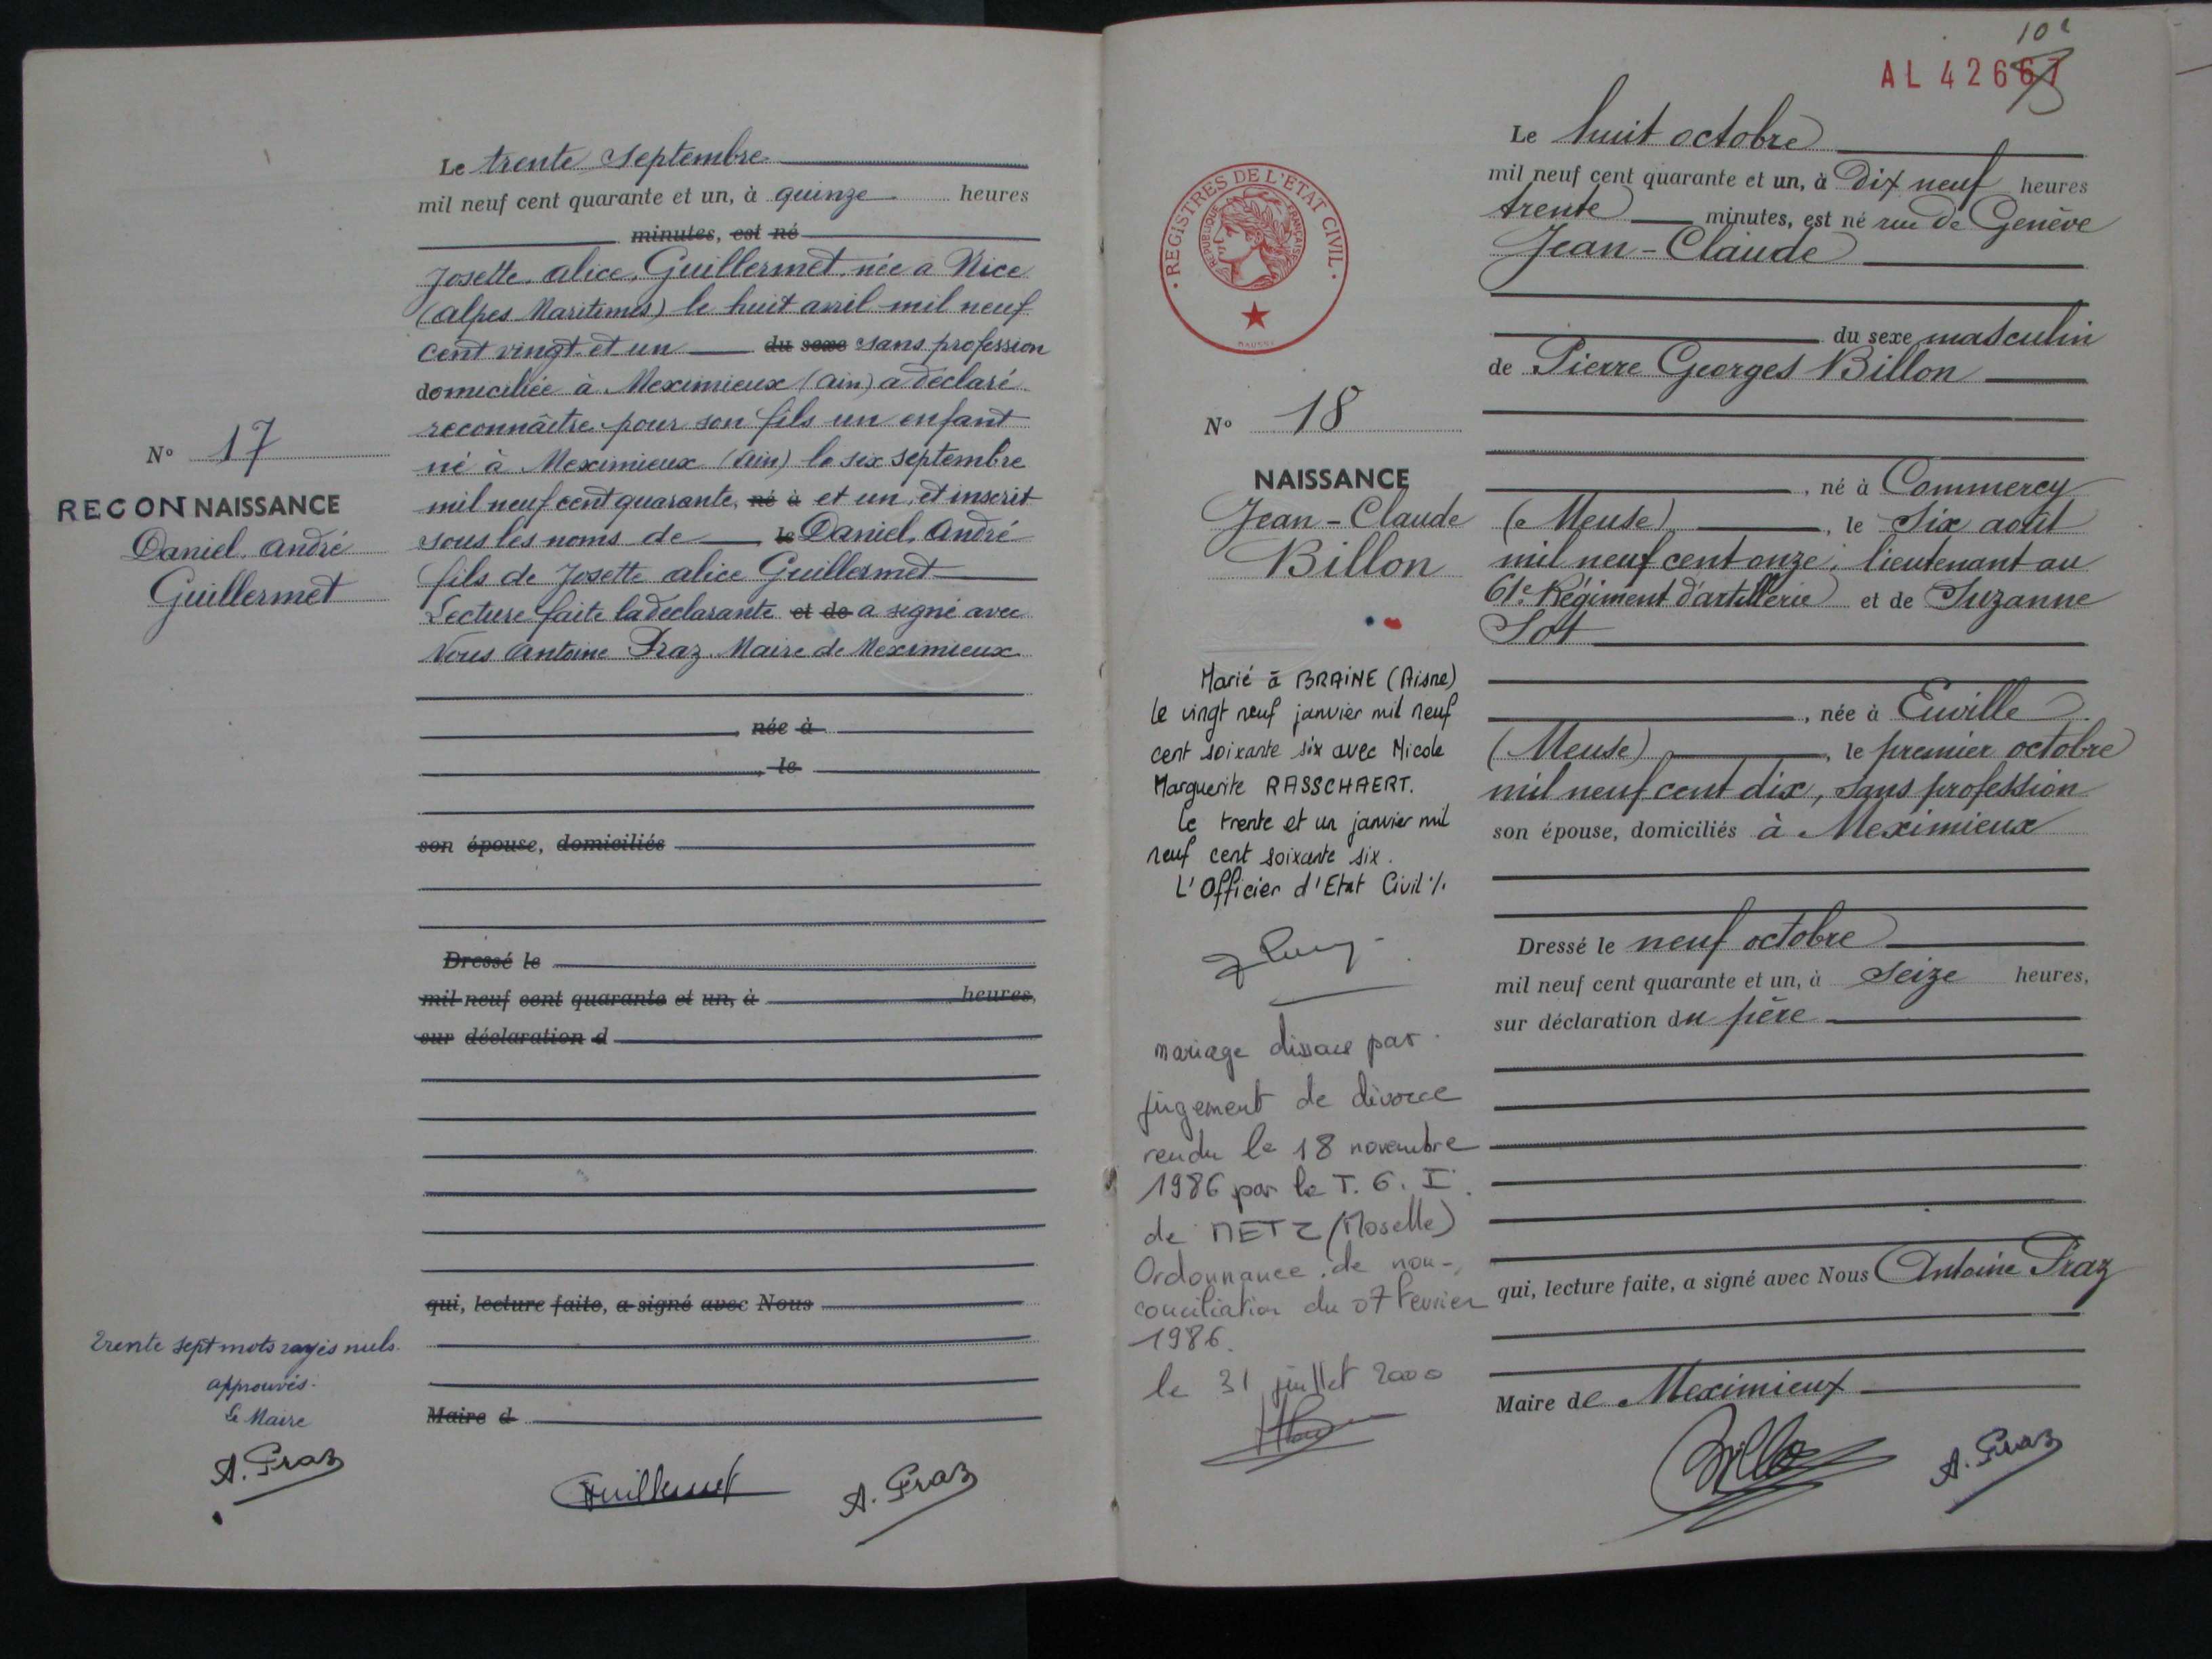 Le trente septembre
mil neuf cent quarante et un, à quinze heures
minutes, est né
Josette, alice, Guillermet, née à Nice
(alpes Maritimes) le huit avril mil neuf
cent vingt et un du sexe sans profession
domiciliée à Meximieux (ain) a déclaré
reconnaître pour son fils un enfant
né à Meximieux (Ain) le six septembre
mil neuf cent quarante, né à et un, et inscrit
sous les noms de le Daniel, André
fils de Josette alice Guillermet
Lecture faite la déclarante et de a signé avec
Nous Antoine Praz Maire de Meximieux
, née à
, le
son épouse, domiciliés
Dressé le
mil neuf cent quarante et un, à heures,
sur déclaration d
qui, lecture faite, a signé avec Nous
Maire d
Guillermet
A. Praz
N° 17
RECONNAISSANCE
Daniel, André
Guillermet
Trente sept mots rayés nuls
approuvés.
Le Maire
A. Praz
10e
AL 42667
REGISTRES DE L'ETAT CIVIL
REPUBLIQUE FRANÇAISE
N° 18
NAISSANCE
Jean-Claude
Billon
Marié à BRAINE (Aisne)
le vingt neuf janvier mil neuf
cent soixante six avec Nicole
Marguerite RASSCHAERT.
Le trente et un janvier mil
neuf cent soixante six.
L'Officier d'Etat Civil %.
mariage dissous par
jugement de divorce
rendu le 18 novembre
1986 par le T. G. I.
de METZ (Moselle)
Ordonnance de non-
conciliation du 07 février
1986.
le 31 juillet 2000
Le huit octobre
mil neuf cent quarante et un, à Dix neuf heures
trente minutes, est né rue de Genève
Jean-Claude
du sexe masculin
de Pierre Georges Billon
, né à Commercy
(Meuse) , le six août
mil neuf cent onze, lieutenant au
61e Régiment d'artillerie et de Suzanne
Sot
, née à Euville
(Meuse) , le premier octobre
mil neuf cent dix, sans profession
son épouse, domiciliés à Meximieux
Dressé le neuf octobre
mil neuf cent quarante et un, à seize heures,
sur déclaration du père
qui, lecture faite, a signé avec Nous Antoine Praz
Maire de Meximieux
A. Praz